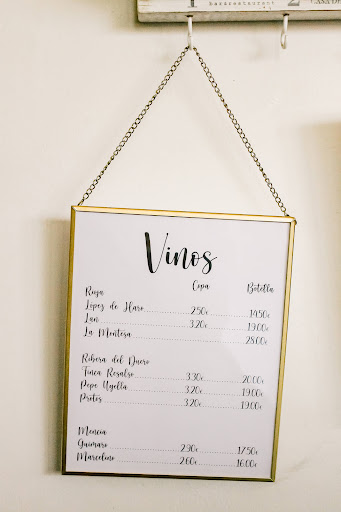 barkrestaurant
Vinos
Copa Botella
Rioja
López de Haro 2.50€ 14.50€
Lan 3.20€ 19.00€
La Montesa 28.00€
Ribera del Duero
Finca Resalso 3.30€ 20.00€
Pepe Yllera 3.20€ 19.00€
Protos 3.20€ 19.00€
Mencia
Guimaro 2.90€ 17.50€
Marcelino 2.60€ 16.00€